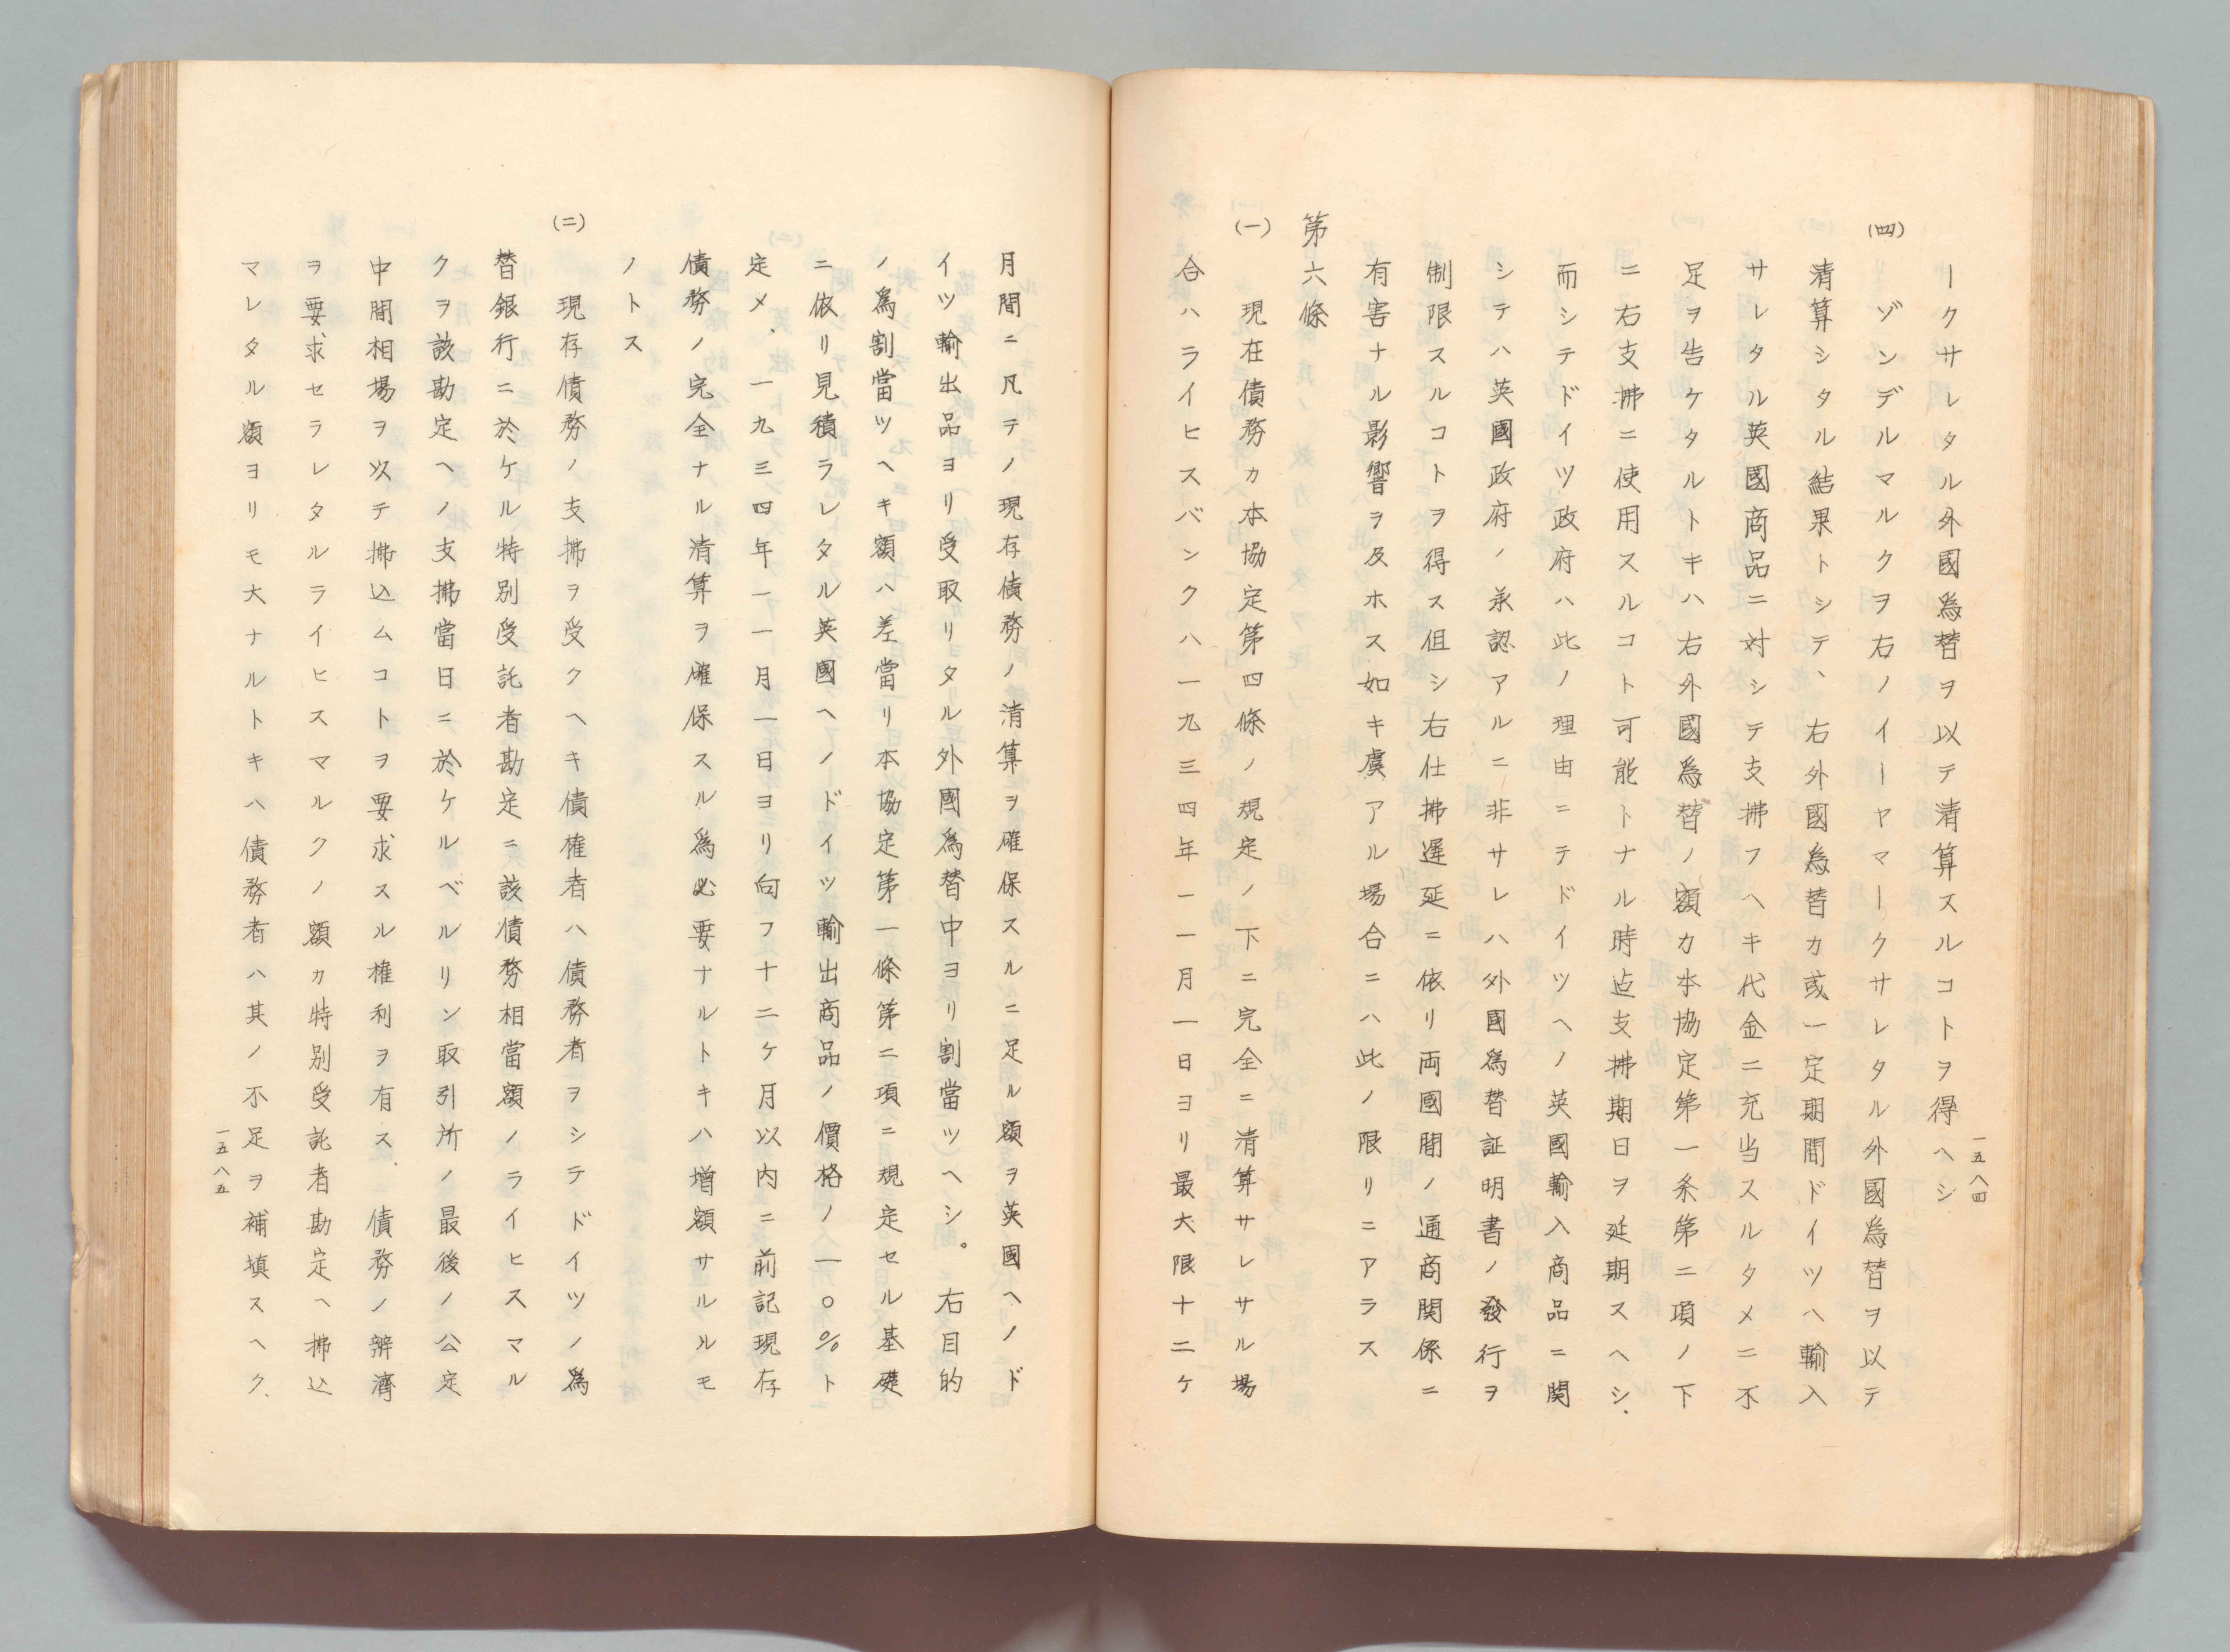 一五八四
ークサレタル外國為替ヲ以テ清算スルコトヲ得ヘシ
(四)
ゾンデルマルクヲ右ノイーヤマークサレタル外國為替ヲ以テ
清算シタル結果トシテ、右外國為替カ或一定期間ドイツヘ輸入
サレタル英國商品ニ対シテ支拂フヘキ代金ニ充当スルタメニ不
足ヲ告ケタルトキハ右外國為替ノ額カ本協定第一条第二項ノ下
ニ右支拂ニ使用スルコト可能トナル時迠支拂期日ヲ延期スヘシ、
而シテドイツ政府ハ此ノ理由ニテドイツヘノ英國輸入商品ニ関
シテハ英國政府ノ承認アルニ非サレハ外國為替証明書ノ發行ヲ
制限スルコトヲ得ス但シ右仕拂遲延ニ依リ両國間ノ通商関係ニ
有害ナル影響ヲ及ホス如キ虞アル場合ニハ此ノ限リニアラス
第六條
(一)
現在債務カ本協定第四條ノ規定ノ下ニ完全ニ清算サレサル場
合ハライヒスバンクハ一九三四年一一月一日ヨリ最大限十二ケ
月間ニ凡テノ現存債務ノ清算ヲ確保スルニ足ル額ヲ英國ヘノド
イツ輸出品ヨリ受取リタル外國為替中ヨリ割當ツヘシ。右目的
ノ為割當ツヘキ額ハ差當リ本協定第一條第二項ニ規定セル基礎
ニ依リ見積ラレタル英國ヘノドイツ輸出商品ノ價格ノ一〇%ト
定メ、一九三四年一一月一日ヨリ向フ十二ケ月以内ニ前記現存
債務ノ完全ナル清算ヲ確保スル為必要ナルトキハ増額サルルモ
ノトス
(二)
現存債務ノ支拂ヲ受クヘキ債権者ハ債務者ヲシテドイツノ為
替銀行ニ於ケル特別受託者勘定ニ該債務相當額ノライヒスマル
クヲ該勘定ヘノ支拂當日ニ於ケルベルリン取引所ノ最後ノ公定
中間相場ヲ以テ拂込ムコトヲ要求スル権利ヲ有ス、債務ノ辨濟
ヲ要求セラレタルライヒスマルクノ額カ特別受託者勘定ヘ拂込
マレタル額ヨリモ大ナルトキハ債務者ハ其ノ不足ヲ補填スヘク、
一五八五